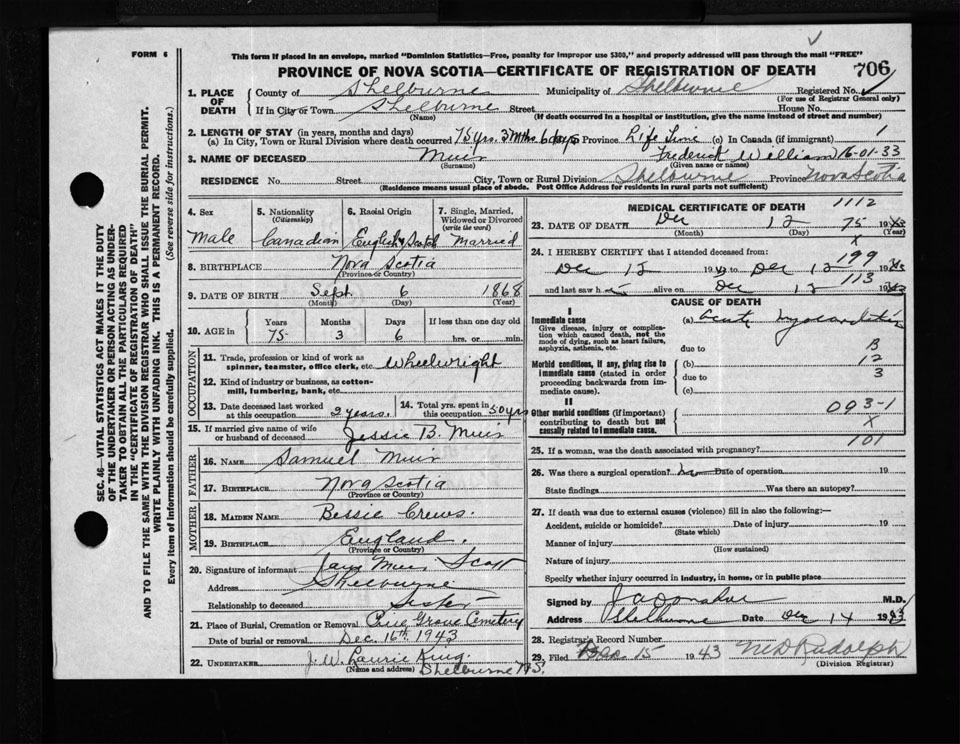 FORM 6
This form if placed in an envelope, marked "Dominion Statistics—Free, penalty for improper use $300," and properly addressed will pass through the mail "FREE"
PROVINCE OF NOVA SCOTIA—CERTIFICATE OF REGISTRATION OF DEATH 706
1. PLACE OF DEATH
County of Shelburne Municipality of Shelburne Registered No.
(For use of Registrar General only)
If in City or Town Shelburne Street House No.
(Name) (If death occurred in a hospital or institution, give the name instead of street and number)
2. LENGTH OF STAY (in years, months and days)
(a) In City, Town or Rural Division where death occurred 75 yrs. 3 mths 6 days Province Life Time (c) In Canada (if immigrant) 1
3. NAME OF DECEASED Muir Frederick William 16-01-33
(Surname) (Given name or names)
RESIDENCE No. Street City, Town or Rural Division Shelburne Province Nova Scotia
(Residence means usual place of abode. Post Office Address for residents in rural parts not sufficient)
4. Sex
Male
5. Nationality
(Citizenship)
Canadian
6. Racial Origin
English & Scotch
7. Single, Married, Widowed or Divorced
(write the word)
Married
8. BIRTHPLACE Nova Scotia
(Province or Country)
9. DATE OF BIRTH Sept 6 1868
(Month) (Day) (Year)
10. AGE in
Years Months Days If less than one day old
75 3 6 hrs. or min.
OCCUPATION
11. Trade, profession or kind of work as spinner, teamster, office clerk, etc. Wheelwright
12. Kind of industry or business, as cotton-mill, lumbering, bank, etc.
13. Date deceased last worked at this occupation 2 years.
14. Total yrs. spent in this occupation 50 yrs
15. If married give name of wife or husband of deceased Jessie B. Muir
FATHER
16. NAME Samuel Muir
17. BIRTHPLACE Nova Scotia
(Province or Country)
MOTHER
18. MAIDEN NAME Bessie Crews.
19. BIRTHPLACE England.
(Province or Country)
20. Signature of informant Jane Muir Scott
Address Shelburne
Relationship to deceased Sister
21. Place of Burial, Cremation or Removal Pine Grove Cemetery
Date of burial or removal Dec. 16th, 1943
22. UNDERTAKER J. W. Laurie King.
(Name and address) Shelburne N.S.
MEDICAL CERTIFICATE OF DEATH 1112
23. DATE OF DEATH Dec 12 75 1943
(Month) (Day) (Year)
x
24. I HEREBY CERTIFY that I attended deceased from: 199
Dec 12 1943 to Dec 12 1943
113
and last saw h alive on Dec 12 1943
CAUSE OF DEATH
I
Immediate cause
Give disease, injury or complication which caused death, not the mode of dying, such as heart failure, asphyxia, asthenia, etc.
(a) Acute Myocarditis
due to B
Morbid conditions, if any, giving rise to immediate cause (stated in order proceeding backwards from immediate cause).
(b) 12
due to 3
(c)
II
Other morbid conditions (if important) contributing to death but not causally related to immediate cause.
093-1
x
101
25. If a woman, was the death associated with pregnancy?
26. Was there a surgical operation? no Date of operation 19
State findings Was there an autopsy?
27. If death was due to external causes (violence) fill in also the following:—
Accident, suicide or homicide? Date of injury 19
(State which)
Manner of injury
(How sustained)
Nature of injury
Specify whether injury occurred in industry, in home, or in public place
Signed by J A Donahue M.D.
Address Shelburne Date Dec 14 1943
28. Registrar's Record Number
29. Filed Dec. 15 1943 M D Rudolph
(Division Registrar)
SEC. 46—VITAL STATISTICS ACT MAKES IT THE DUTY
OF THE UNDERTAKER OR PERSON ACTING AS UNDER-
TAKER TO OBTAIN ALL THE PARTICULARS REQUIRED
IN THE "CERTIFICATE OF REGISTRATION OF DEATH"
AND TO FILE THE SAME WITH THE DIVISION REGISTRAR WHO SHALL ISSUE THE BURIAL PERMIT.
WRITE PLAINLY WITH UNFADING INK. THIS IS A PERMANENT RECORD.
Every item of information should be carefully supplied. (See reverse side for instructions.)